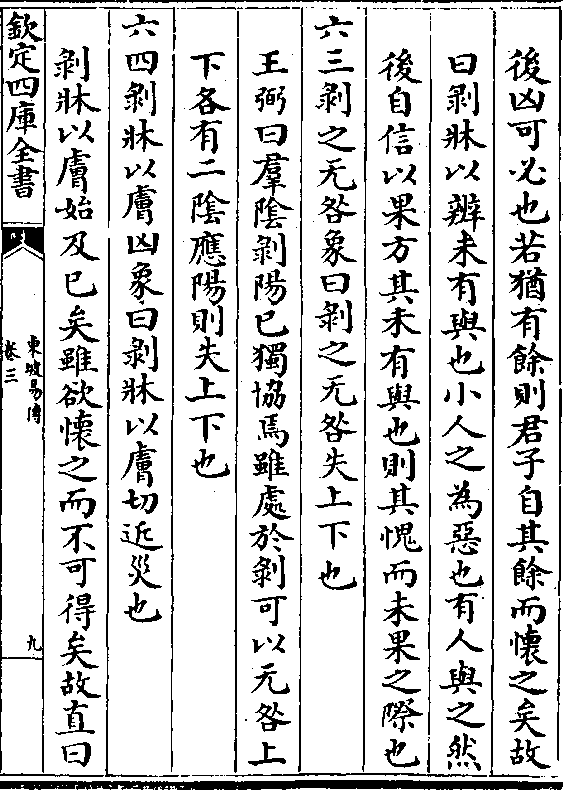 後凶可必也若猶有餘則君子自其餘而懷之矣故
曰剥牀以辨未有與也小人之為惡也有人與之然
後自信以果方其未有與也則其愧而未果之際也
六三剥之无咎象曰剥之无咎失上下也
王弼曰羣隂剥陽已獨協焉雖處於剥可以无咎上
下各有二隂應陽則失上下也
六四剥牀以膚凶象曰剥牀以膚切近災也
剥牀以膚始及已矣雖欲懷之而不可得矣故直曰
欽定四庫全書
東坡易傳
卷三
九